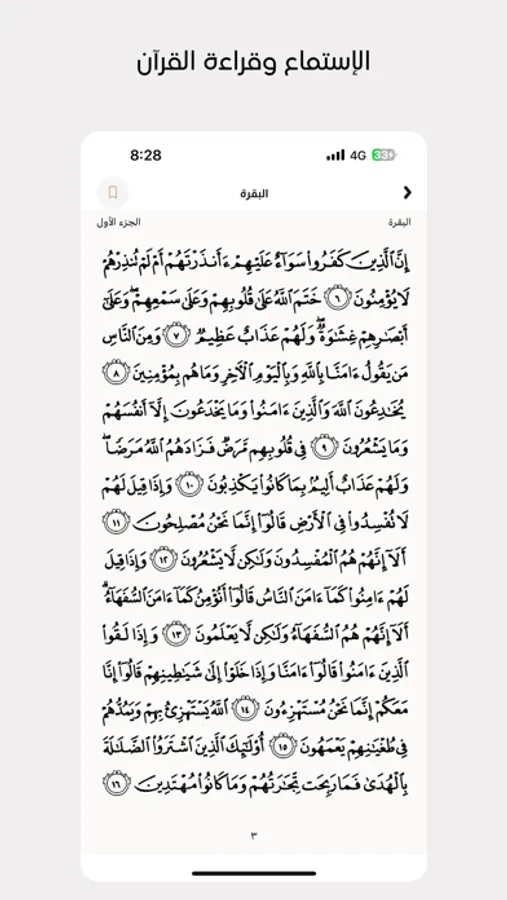 الإستماع وقراءة القرآن
8:28
4G 33
البقرة
البقرة
الجزء الأول
إِنَّ ٱلَّذِينَ كَفَرُواْ سَوَآءٌ عَلَيۡهِمۡ ءَأَنذَرۡتَهُمۡ أَمۡ لَمۡ تُنذِرۡهُمۡ
لَا يُؤۡمِنُونَ ٦ خَتَمَ ٱللَّهُ عَلَىٰ قُلُوبِهِمۡ وَعَلَىٰ سَمۡعِهِمۡۖ وَعَلَىٰٓ
أَبۡصَٰرِهِمۡ غِشَٰوَةٞۖ وَلَهُمۡ عَذَابٌ عَظِيمٞ ٧ وَمِنَ ٱلنَّاسِ
مَن يَقُولُ ءَامَنَّا بِٱللَّهِ وَبِٱلۡيَوۡمِ ٱلۡأٓخِرِ وَمَا هُم بِمُؤۡمِنِينَ ٨
يُخَٰدِعُونَ ٱللَّهَ وَٱلَّذِينَ ءَامَنُواْ وَمَا يَخۡدَعُونَ إِلَّآ أَنفُسَهُمۡ
وَمَا يَشۡعُرُونَ ٩ فِي قُلُوبِهِم مَّرَضٞ فَزَادَهُمُ ٱللَّهُ مَرَضٗاۖ
وَلَهُمۡ عَذَابٌ أَلِيمُۢ بِمَا كَانُواْ يَكۡذِبُونَ ١٠ وَإِذَا قِيلَ لَهُمۡ
لَا تُفۡسِدُواْ فِي ٱلۡأَرۡضِ قَالُوٓاْ إِنَّمَا نَحۡنُ مُصۡلِحُونَ ١١
أَلَآ إِنَّهُمۡ هُمُ ٱلۡمُفۡسِدُونَ وَلَٰكِن لَّا يَشۡعُرُونَ ١٢ وَإِذَا قِيلَ
لَهُمۡ ءَامِنُواْ كَمَآ ءَامَنَ ٱلنَّاسُ قَالُوٓاْ أَنُؤۡمِنُ كَمَآ ءَامَنَ ٱلسُّفَهَآءُۗ
أَلَآ إِنَّهُمۡ هُمُ ٱلسُّفَهَآءُ وَلَٰكِن لَّا يَعۡلَمُونَ ١٣ وَإِذَا لَقُواْ
ٱلَّذِينَ ءَامَنُواْ قَالُوٓاْ ءَامَنَّا وَإِذَا خَلَوۡاْ إِلَىٰ شَيَٰطِينِهِمۡ قَالُوٓاْ إِنَّا
مَعَكُمۡ إِنَّمَا نَحۡنُ مُسۡتَهۡزِءُونَ ١٤ ٱللَّهُ يَسۡتَهۡزِئُ بِهِمۡ وَيَمُدُّهُمۡ
فِي طُغۡيَٰنِهِمۡ يَعۡمَهُونَ ١٥ أُوْلَٰٓئِكَ ٱلَّذِينَ ٱشۡتَرَوُاْ ٱلضَّلَٰلَةَ
بِٱلۡهُدَىٰ فَمَا رَبِحَت تِّجَٰرَتُهُمۡ وَمَا كَانُواْ مُهۡتَدِينَ ١٦
٣